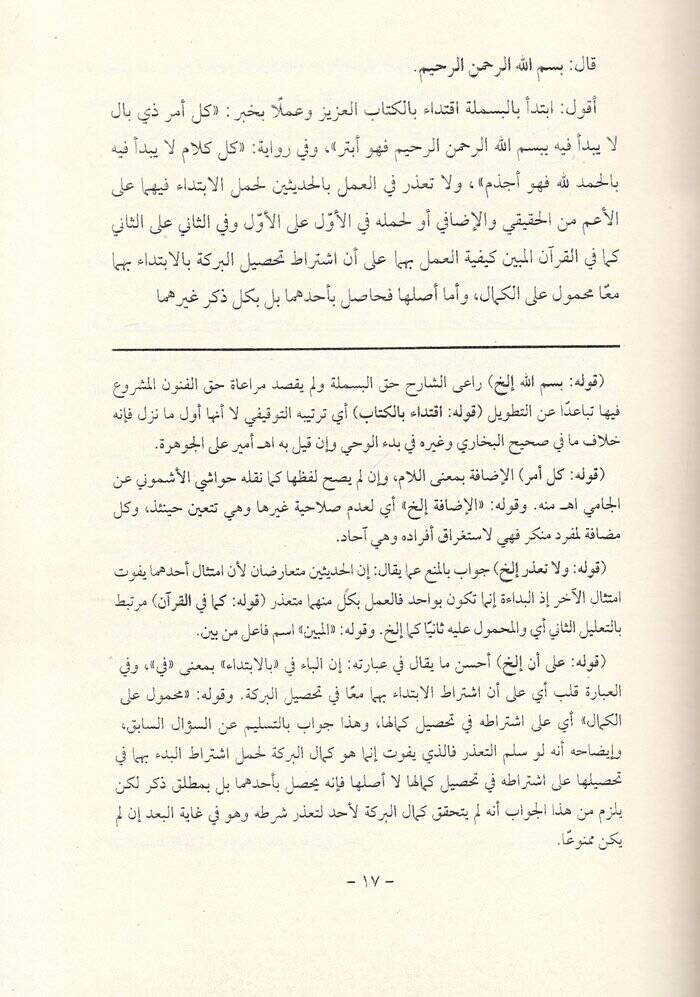 قال: بسم الله الرحمن الرحيم.
أقول: ابتدأ بالبسملة اقتداء بالكتاب العزيز وعملًا بخبر: «كل أمر ذي بال
لا يبدأ فيه ببسم الله الرحمن الرحيم فهو أبتر»، وفي رواية: «كل كلام لا يبدأ فيه
بالحمد لله فهو أجذم»، ولا تعذر في العمل بالحديثين لحمل الابتداء فيهما على
الأعم من الحقيقي والإضافي أو لحمله في الأوّل على الأوّل وفي الثاني على الثاني
كما في القرآن المبين كيفية العمل بهما على أن اشتراط تحصيل البركة بالابتداء بهما
معًا محمول على الكمال، وأما أصلها فحاصل بأحدهما بل بكل ذكر غيرهما
(قوله: بسم الله إلخ) راعى الشارح حق البسملة ولم يقصد مراعاة حق الفنون المشروع
فيها تباعدًا عن التطويل (قوله: اقتداء بالكتاب) أي ترتيبه التوقيفي لا أنها أول ما نزل فإنه
خلاف ما في صحيح البخاري وغيره في بدء الوحي وإن قيل به اهـ أمير على الجوهرة.
(قوله: كل أمر) الإضافة بمعنى اللام، وإن لم يصح لفظها كما نقله حواشي الأشموني عن
الجامي اهـ منه. وقوله: «الإضافة إلخ» أي لعدم صلاحية غيرها وهي تتعين حينئذ، وكل
مضافة لمفرد منكر فهي لاستغراق أفراده وهي آحاد.
(قوله: ولا تعذر إلخ) جواب بالمنع عما يقال: إن الحديثين متعارضان لأن امتثال أحدهما يفوت
امتثال الآخر إذ البداءة إنما تكون بواحد فالعمل بكلٍّ منهما متعذر (قوله: كما في القرآن) مرتبط
بالتعليل الثاني أي والمحمول عليه ثانيًا كما إلخ. وقوله: «المبين» اسم فاعل من بين.
(قوله: على أن إلخ) أحسن ما يقال في عبارته: إن الباء في «بالابتداء» بمعنى «في»، وفي
العبارة قلب أي على أن اشتراط الابتداء بهما معًا في تحصيل البركة. وقوله: «محمول على
الكمال» أي على اشتراطه في تحصيل كمالها، وهذا جواب بالتسليم عن السؤال السابق،
وإيضاحه أنه لو سلم التعذر فالذي يفوت إنما هو كمال البركة لحمل اشتراط البدء بهما في
تحصيلها على اشتراطه في تحصيل كمالها لا أصلها فإنه يحصل بأحدهما بل بمطلق ذكر لكن
يلزم من هذا الجواب أنه لم يتحقق كمال البركة لأحد لتعذر شرطه وهو في غاية البعد إن لم
يكن ممنوعًا.
- ١٧ -